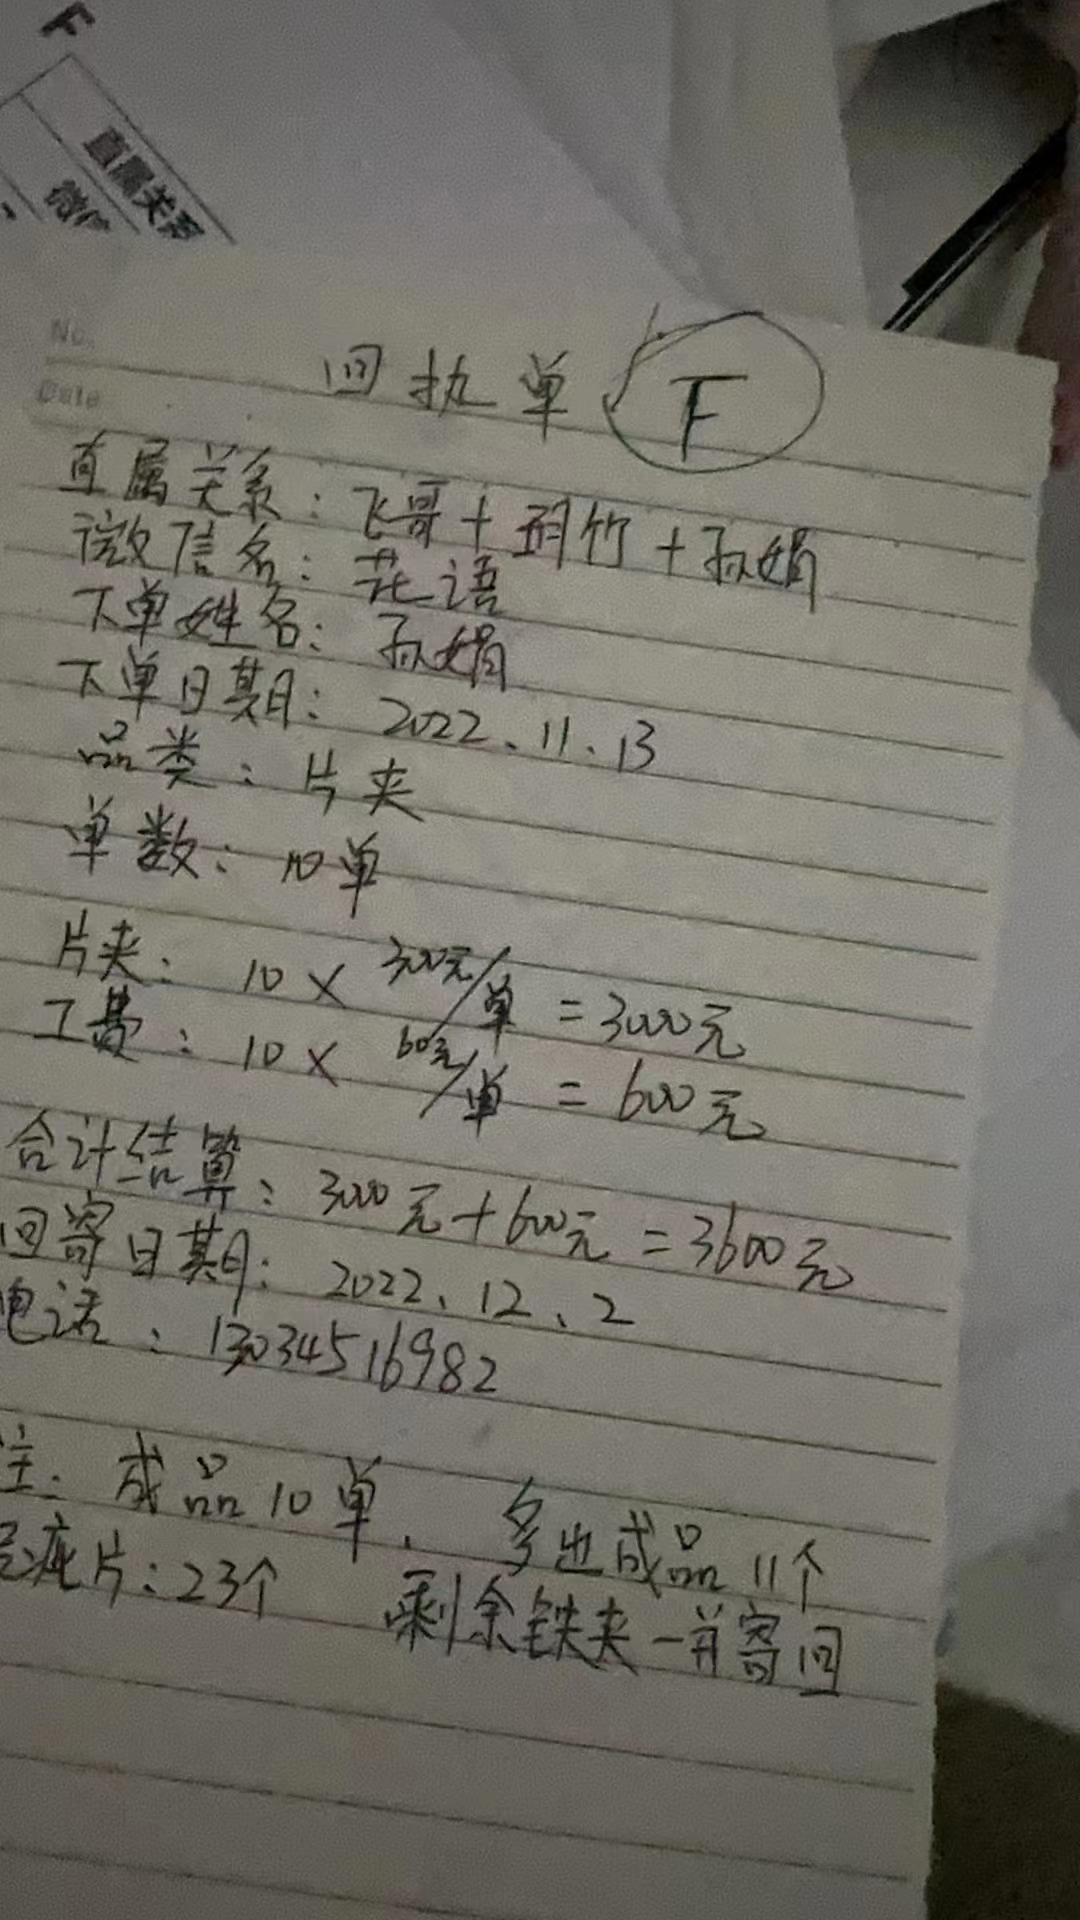 F
直属关系
微信
No.
Date
回执单 F
直属关系：飞哥+雨竹+孙娟
微信名：花语
下单姓名：孙娟
下单日期：2022、11、13
品类：片夹
单数：10单
片夹：10×300元/单=3000元
工费：10×60元/单=600元
合计结算：3000元+600元=3600元
回寄日期：2022、12、2
电话：13034516982
注：成品10单，多出成品11个
疵片：23个 剩余铁夹一并寄回